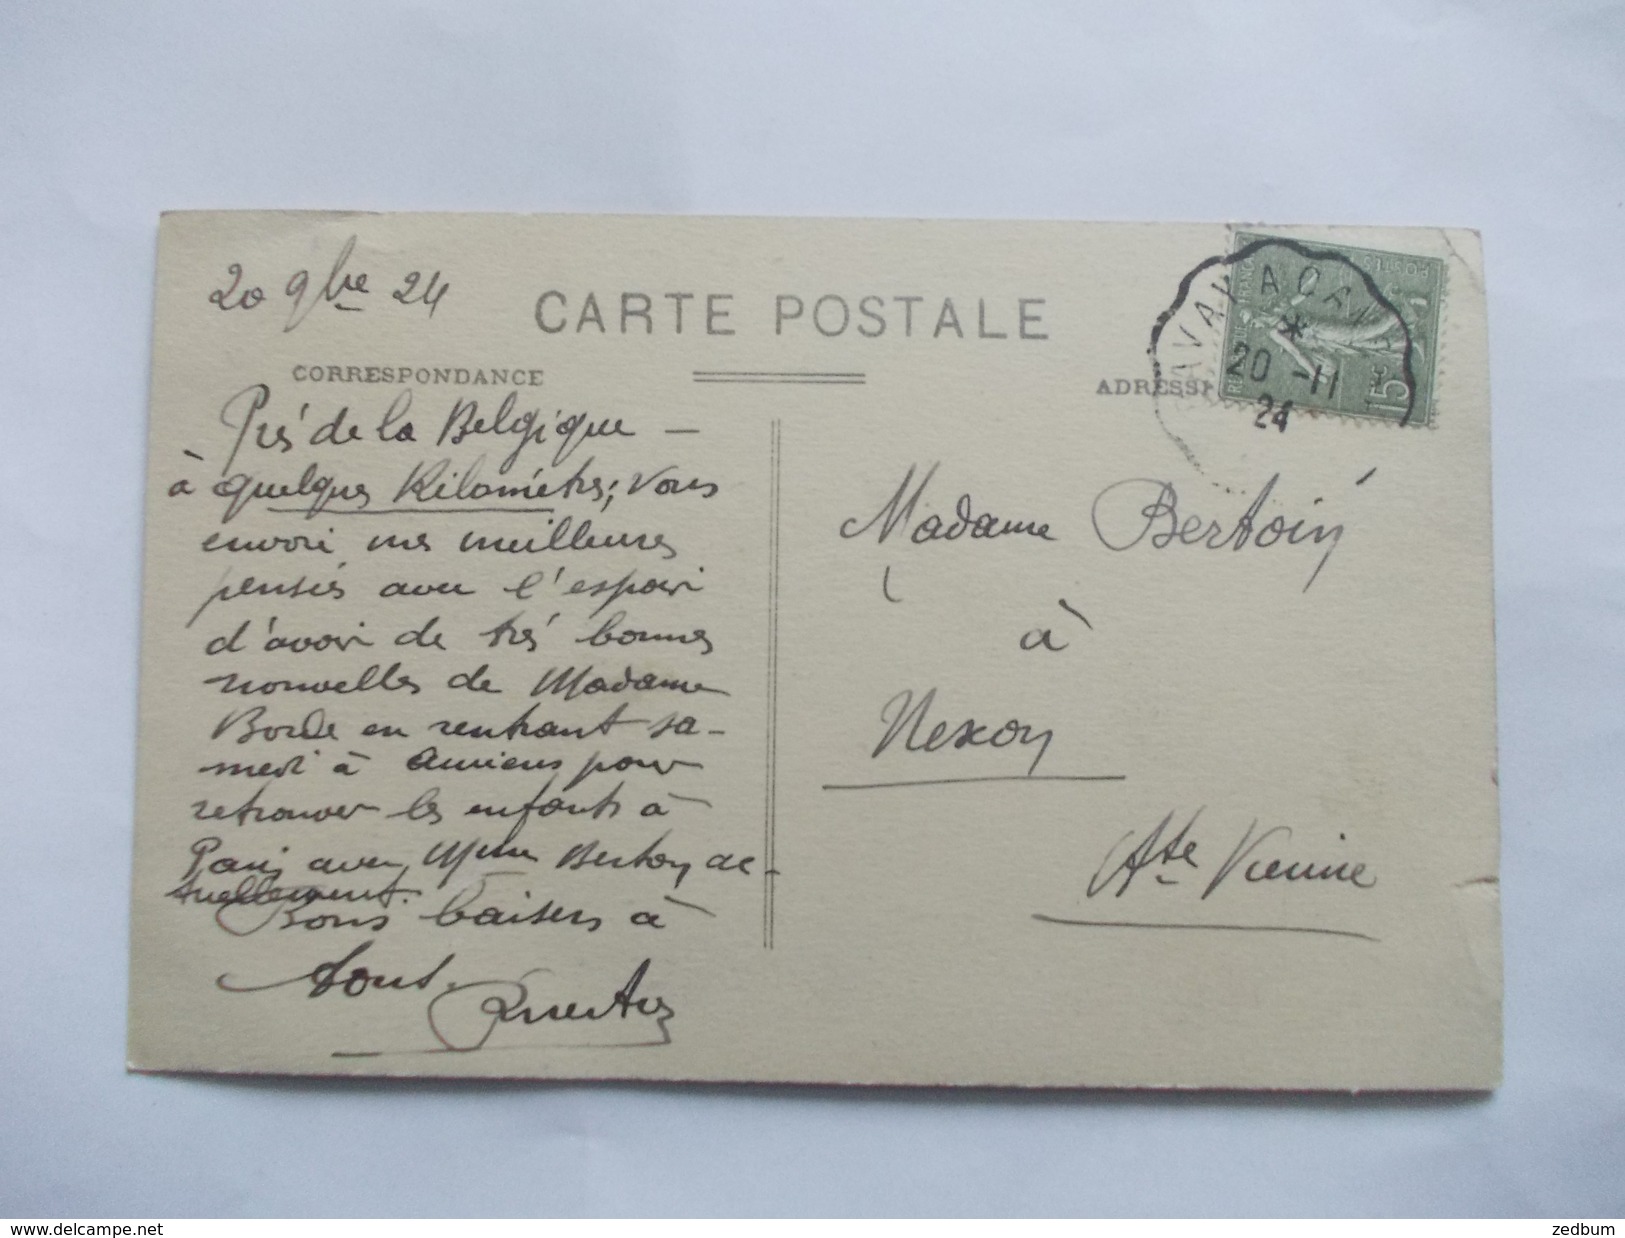 20 9bre 24
CARTE POSTALE
CORRESPONDANCE
ADRESSE
Près de la Belgique —
à quelques Kilomètres; vous
envoie mes meilleures
pensées avec l'espoir
d'avoir de très bonnes
nouvelles de Madame
Borde en rentrant sa-
medi à Amiens pour
retrouver les enfants à
Paris avec Mme Bertoin ac-
tuellement.
Bons baisers à
tous.
Madame Bertoin
à
Nexon
Hte Vienne
20 -11
24
POSTES
15c
delcampe.net
zedbum